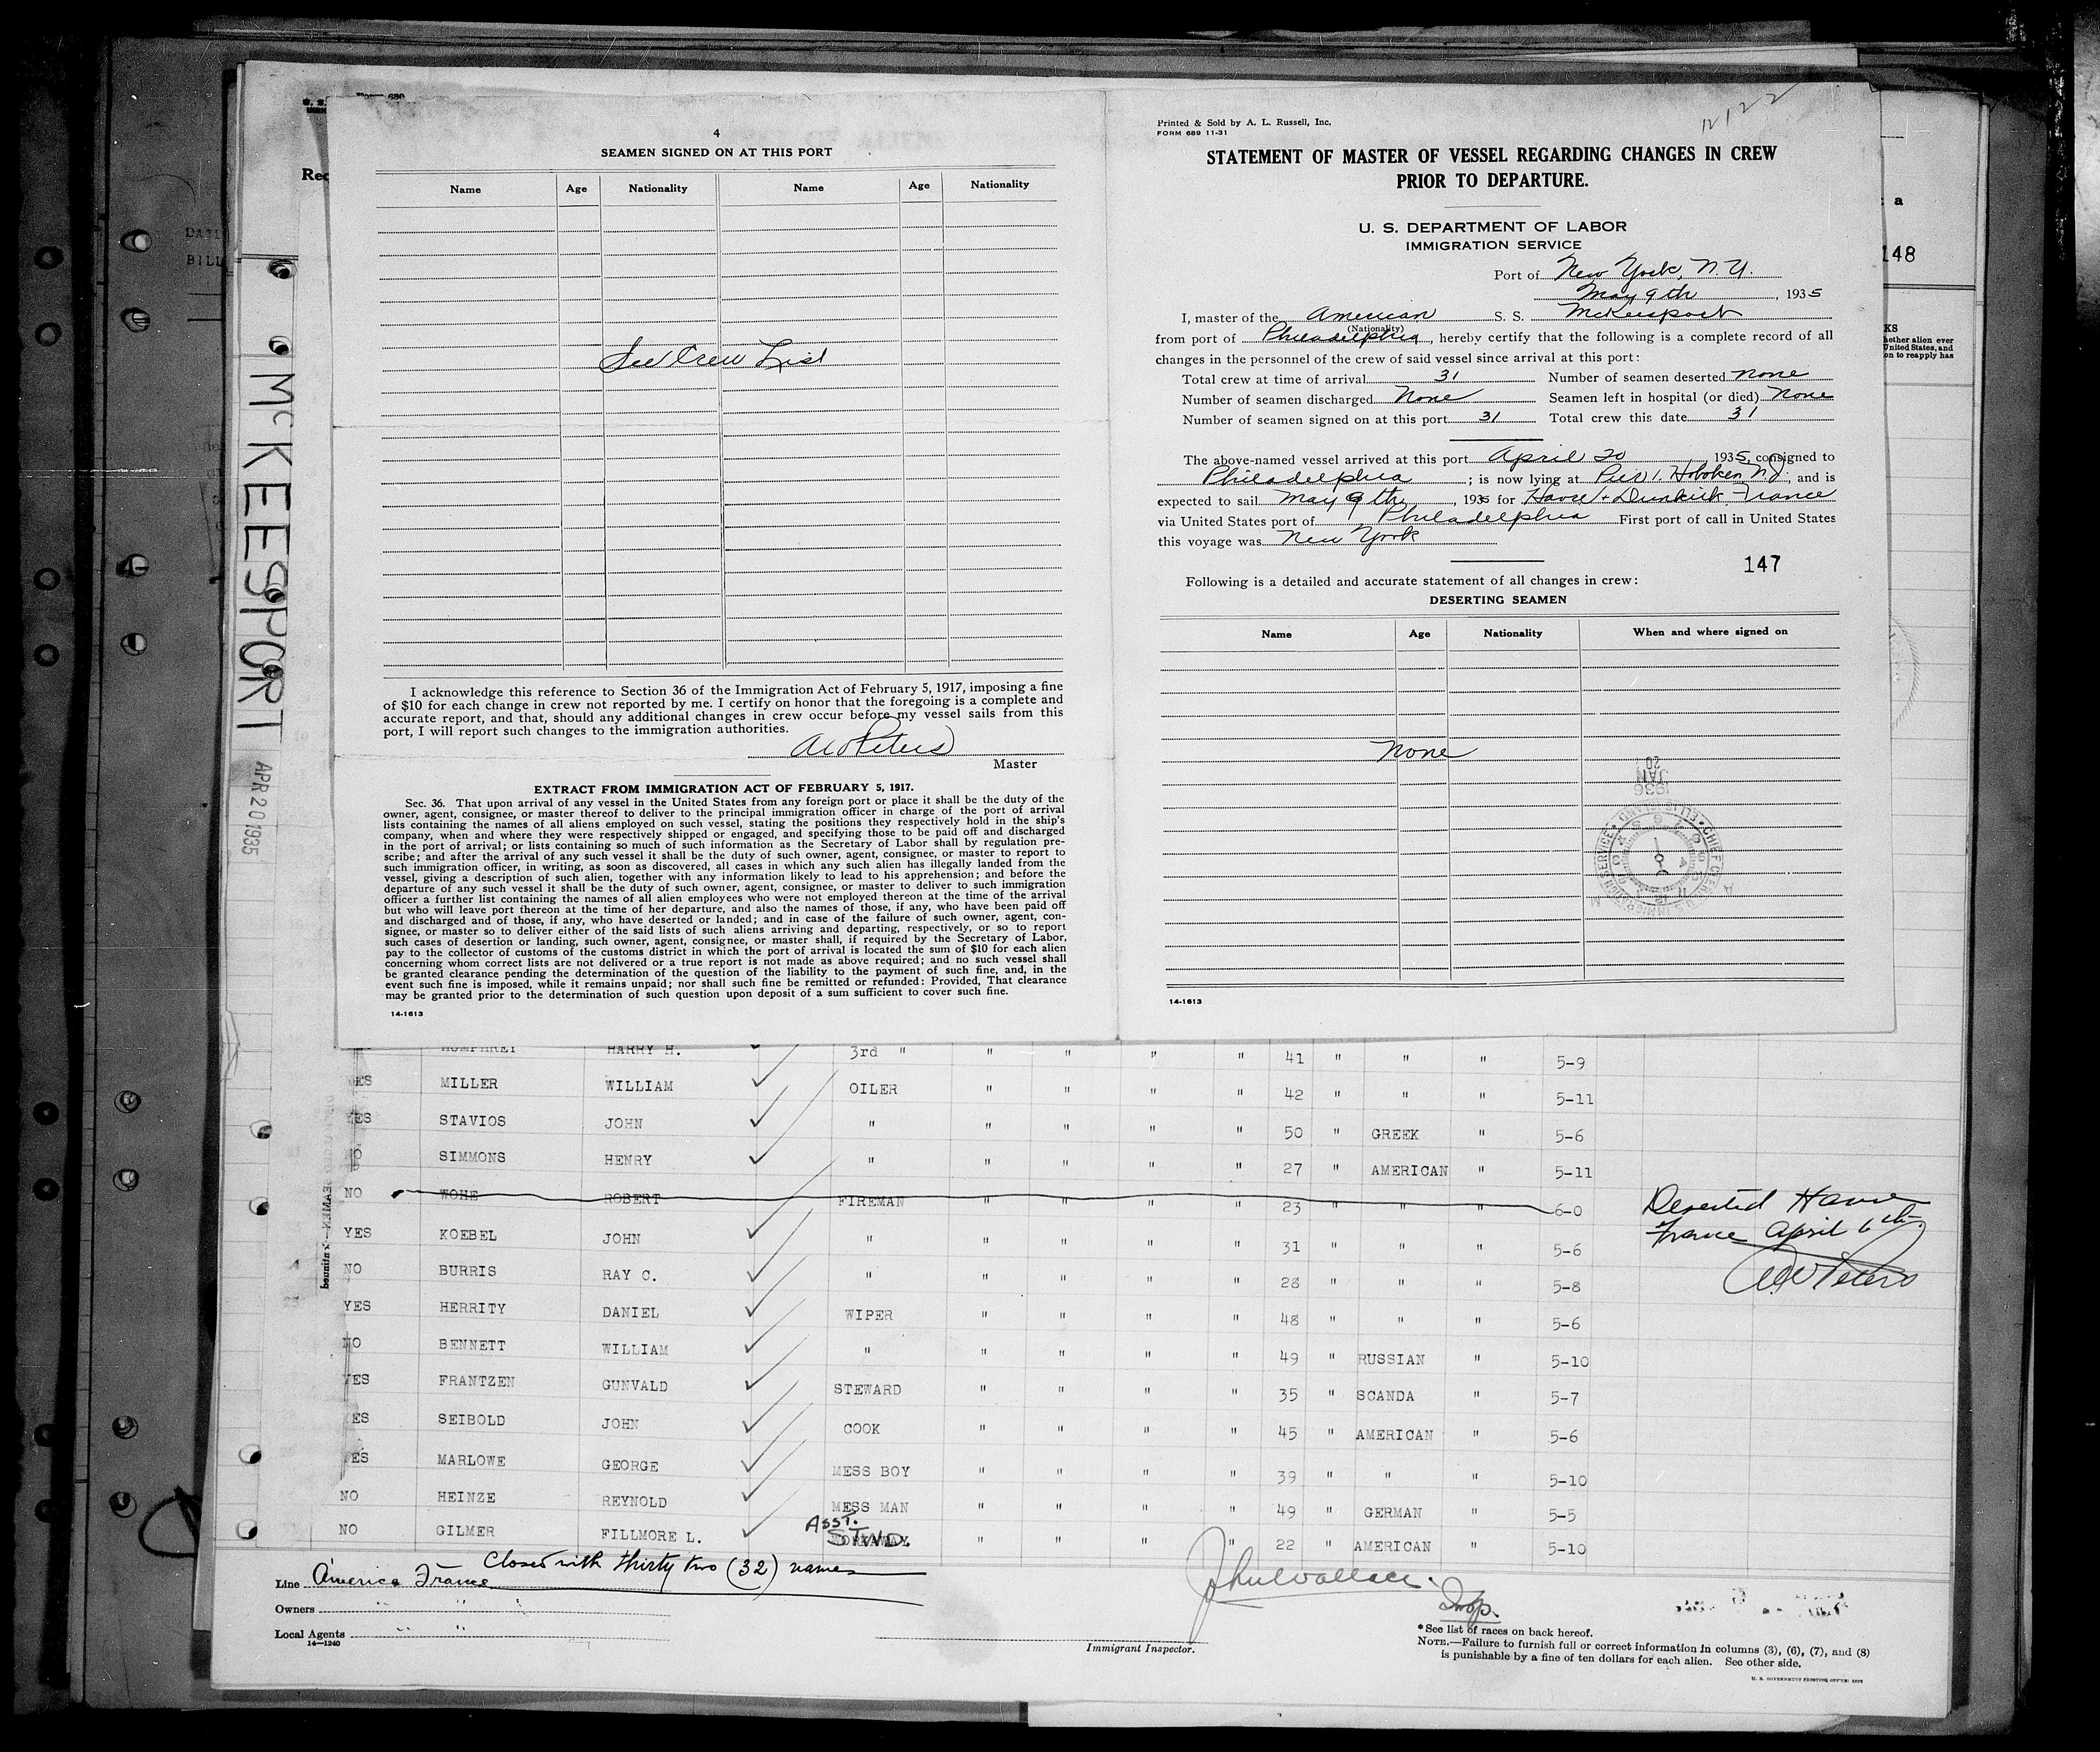 4
SEAMEN SIGNED ON AT THIS PORT
Name Age Nationality Name Age Nationality
See Crew List
I acknowledge this reference to Section 36 of the Immigration Act of February 5, 1917, imposing a fine
of $10 for each change in crew not reported by me. I certify on honor that the foregoing is a complete and
accurate report, and that, should any additional changes in crew occur before my vessel sails from this
port, I will report such changes to the immigration authorities.
Master
EXTRACT FROM IMMIGRATION ACT OF FEBRUARY 5, 1917.
Sec. 36. That upon arrival of any vessel in the United States from any foreign port or place it shall be the duty of the
owner, agent, consignee, or master thereof to deliver to the principal immigration officer in charge of the port of arrival
lists containing the names of all aliens employed on such vessel, stating the positions they respectively hold in the ship's
company, when and where they were respectively shipped or engaged, and specifying those to be paid off and discharged
in the port of arrival; or lists containing so much of such information as the Secretary of Labor shall by regulation pre-
scribe; and after the arrival of any such vessel it shall be the duty of such owner, agent, consignee, or master to report to
such immigration officer, in writing, as soon as discovered, all cases in which any such alien has illegally landed from the
vessel, giving a description of such alien, together with any information likely to lead to his apprehension; and before the
departure of any such vessel it shall be the duty of such owner, agent, consignee, or master to deliver to such immigration
officer a further list containing the names of all alien employees who were not employed thereon at the time of the arrival
but who will leave port thereon at the time of her departure, and also the names of those, if any, who have been paid off
and discharged and of those, if any, who have deserted or landed; and in case of the failure of such owner, agent, con-
signee, or master so to deliver either of the said lists of such aliens arriving and departing, respectively, or so to report
such cases of desertion or landing, such owner, agent, consignee, or master shall, if required by the Secretary of Labor,
pay to the collector of customs of the customs district in which the port of arrival is located the sum of $10 for each alien
concerning whom correct lists are not delivered or a true report is not made as above required; and no such vessel shall
be granted clearance pending the determination of the question of the liability to the payment of such fine, and, in the
event such fine is imposed, while it remains unpaid; nor shall such fine be remitted or refunded: Provided, That clearance
may be granted prior to the determination of such question upon deposit of a sum sufficient to cover such fine.
14-1613
Printed & Sold by A. L. Russell, Inc.
FORM 689 11-31
STATEMENT OF MASTER OF VESSEL REGARDING CHANGES IN CREW
PRIOR TO DEPARTURE.
U. S. DEPARTMENT OF LABOR
IMMIGRATION SERVICE
Port of New York, N.Y.
May 9th, 1935
I, master of the American S. S. McKeesport
(Nationality)
from port of Philadelphia, hereby certify that the following is a complete record of all
changes in the personnel of the crew of said vessel since arrival at this port:
Total crew at time of arrival 31 Number of seamen deserted None
Number of seamen discharged None Seamen left in hospital (or died) None
Number of seamen signed on at this port 31 Total crew this date 31
The above-named vessel arrived at this port April 20 1935, consigned to
Philadelphia; is now lying at Pier 1, Hoboken N.J., and is
expected to sail May 9th, 1935 for Havre + Dunkirk France
via United States port of Philadelphia First port of call in United States
this voyage was New York
147
Following is a detailed and accurate statement of all changes in crew:
DESERTING SEAMEN
Name Age Nationality When and where signed on
None
JAN 20 1936
14-1613
148
McKEESPORT
APR 20 1935
HUMPHREY HARRY H. 3rd " " " " " 41 " " " 5-9
YES MILLER WILLIAM OILER " " " " 42 " " " 5-11
YES STAVIOS JOHN " " " " " 50 " GREEK " 5-6
NO SIMMONS HENRY " " " " " 27 " AMERICAN " 5-11
NO WOHE ROBERT FIREMAN " " " " 23 " " " 6-0
Deserted Havre
France April 6th
YES KOEBEL JOHN " " " " " 31 " " " 5-6
NO BURRIS RAY C. " " " " " 28 " " " 5-8
YES HERRITY DANIEL WIPER " " " " 48 " " " 5-6
NO BENNETT WILLIAM " " " " " 49 " RUSSIAN " 5-10
YES FRANTZEN GUNVALD STEWARD " " " " 35 " SCANDA " 5-7
YES SEIBOLD JOHN COOK " " " " 45 " AMERICAN " 5-6
YES MARLOWE GEORGE MESS BOY " " " " 39 " " " 5-10
NO HEINZE REYNOLD MESS MAN " " " " 49 " GERMAN " 5-5
NO GILMER FILLMORE L. ASST. STWD. " " " " 22 " AMERICAN " 5-10
Closed with thirty two (32) names
Line America France
Owners " " "
Local Agents " "
14-1240
John Wallace
Insp.
Immigrant Inspector.
*See list of races on back hereof.
NOTE.—Failure to furnish full or correct information in columns (3), (6), (7), and (8)
is punishable by a fine of ten dollars for each alien. See other side.
U. S. GOVERNMENT PRINTING OFFICE: